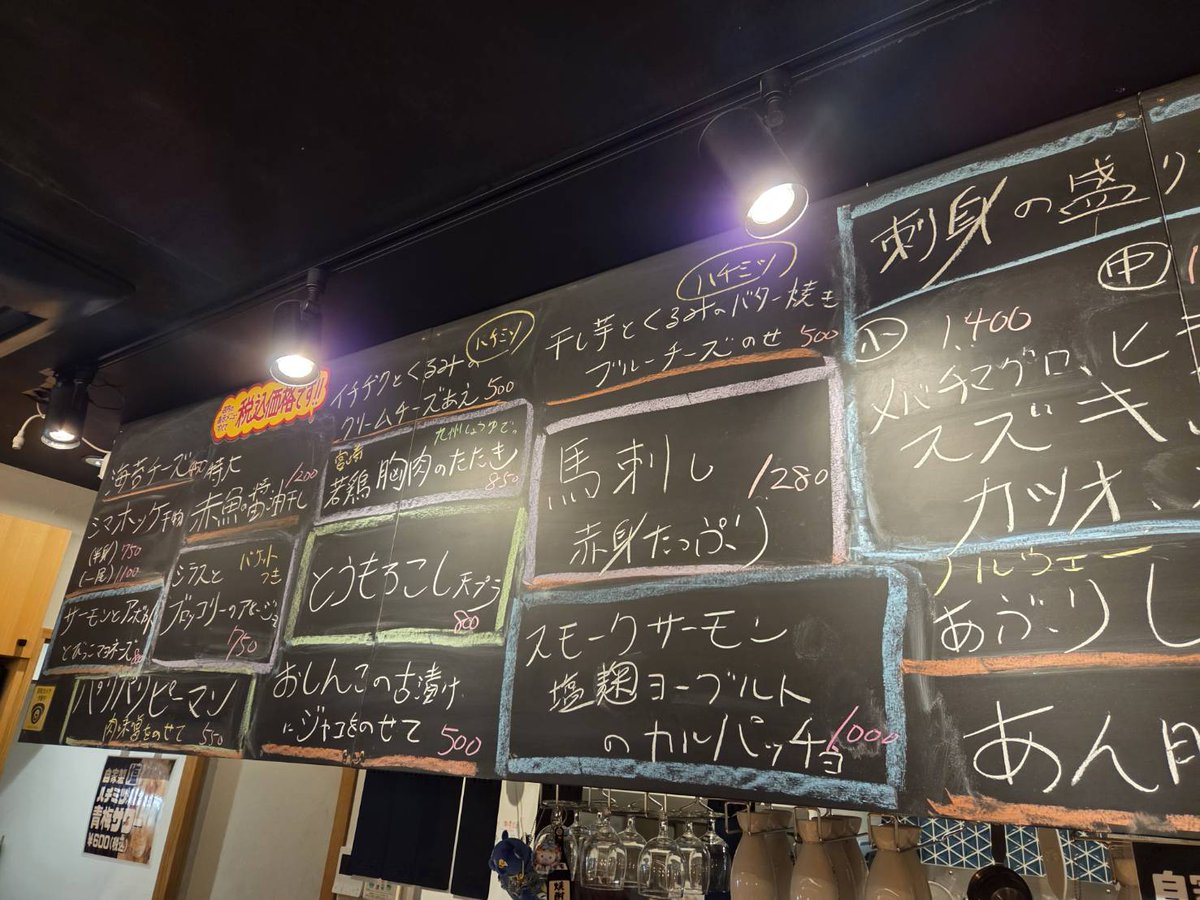 税込価格です!!
海苔チーズ
シマホッケ干物
(半身) 750
(一尾) 1100
サーモンとアボカド
とびっこマヨネーズ
パリパリピーマン
肉味噌をのせて 550
特大
1200
赤魚の醤油干し
シラスと
バケットつき
ブロッコリーのアヒージョ
750
イチヂクとくるみの ハチミツ
クリームチーズあえ 500
宮崎 九州しょうゆで。
若鶏胸肉のたたき
850
とうもろこし天プラ
800
おしんこの古漬け
にジャコをのせて 500
ハチミツ
干し芋とくるみのバター焼き
ブルーチーズのせ 500
馬刺し 1280
赤身たっぷり
スモークサーモン
塩麹ヨーグルト
のカルパッチョ 1000
刺身の盛り
小 1,400 中
メバチマグロ、ヒ
スズキ、
カツオ、
ノルウェー
あぶりし
あん
自家製
ハチミツ
青梅サワー
¥600(税込)
自